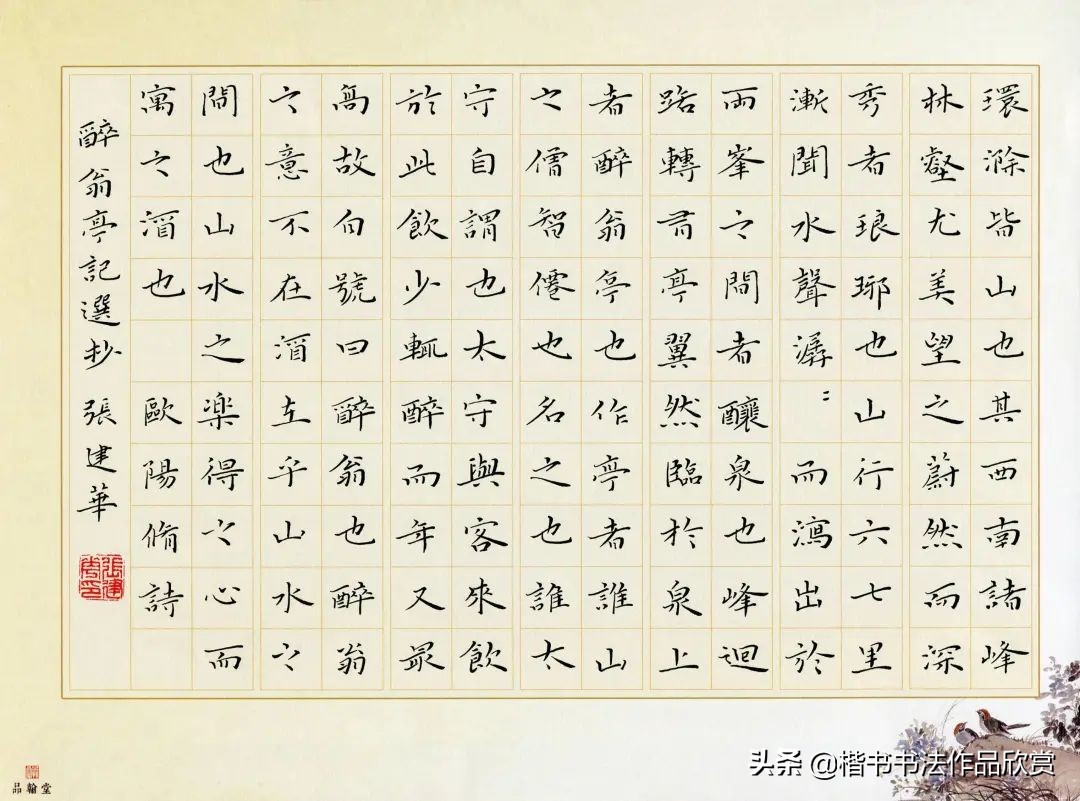 環滁皆山也其西南諸峰
林壑尤美望之蔚然而深
秀者琅琊也山行六七里
漸聞水聲潺〻而瀉出於
兩峯之間者釀泉也峰迴
路轉有亭翼然臨於泉上
者醉翁亭也作亭者誰山
之僧智僊也名之也誰太
守自謂也太守與客來飲
於此飲少輒醉而年又最
高故自號曰醉翁也醉翁
之意不在酒在乎山水之
間也山水之楽得之心而
寓之酒也 歐陽脩詩
醉翁亭記選抄 張建華
張建華印
品翰堂
头条 @楷书书法作品欣赏